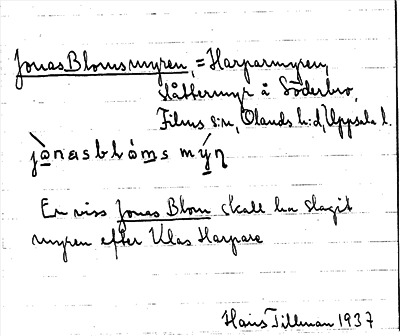 Jonas Blomsmyren, = Harparmyren,
slåttermyr å Söderbo,
Films s:n, Olands h:d, Uppsala l.
jònasblóms mýn
En viss Jonas Blom skall ha slagit
myren efter Klas Harpare
Hans Tillman 1937